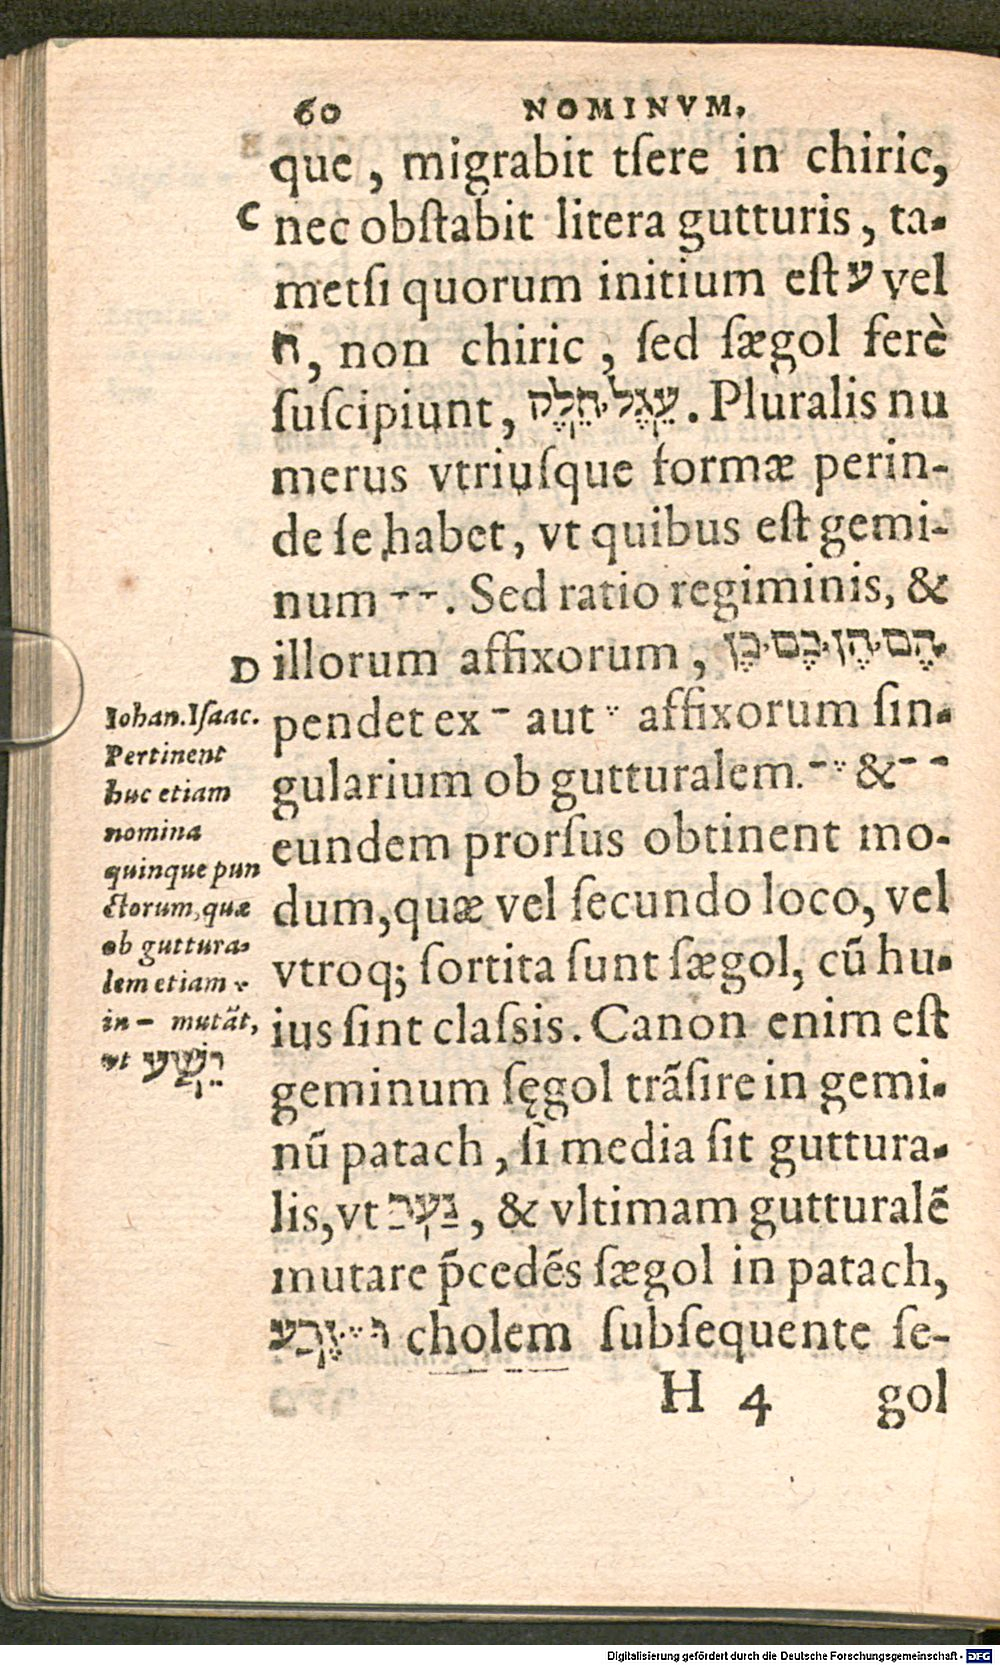 60 NOMINVM.
que, migrabit tſere in chiric,
C nec obſtabit litera gutturis, ta-
metſi quorum initium eſt ע vel
ח, non chiric, ſed ſægol ferè
ſuſcipiunt, עֵגֶל חֵלֶק. Pluralis nu
merus vtriuſque formæ perin-
de ſe habet, vt quibus eſt gemi-
num ־ ־. Sed ratio regiminis, &
D illorum affixorum, הֶם הֶן כֶם כֶן
pendet ex - aut affixorum ſin-
gularium ob gutturalem. &
eundem prorſus obtinent mo-
dum, quæ vel ſecundo loco, vel
vtroq; ſortita ſunt ſægol, cũ hu-
ius ſint claſsis. Canon enim eſt
geminum ſęgol trãſire in gemi-
nũ patach, ſi media ſit guttura-
lis, vt נַעַר, & vltimam gutturalẽ
mutare p̃cedẽs ſægol in patach,
זֶרַע cholem ſubſequente ſe-
H 4 gol
Iohan. Iſaac.
Pertinent
huc etiam
nomina
quinque pun
ctorum, quæ
ob guttura-
lem etiam
in - mutãt,
vt רֵשַׁע
Digitalisierung gefördert durch die Deutsche Forschungsgemeinschaft - DFG